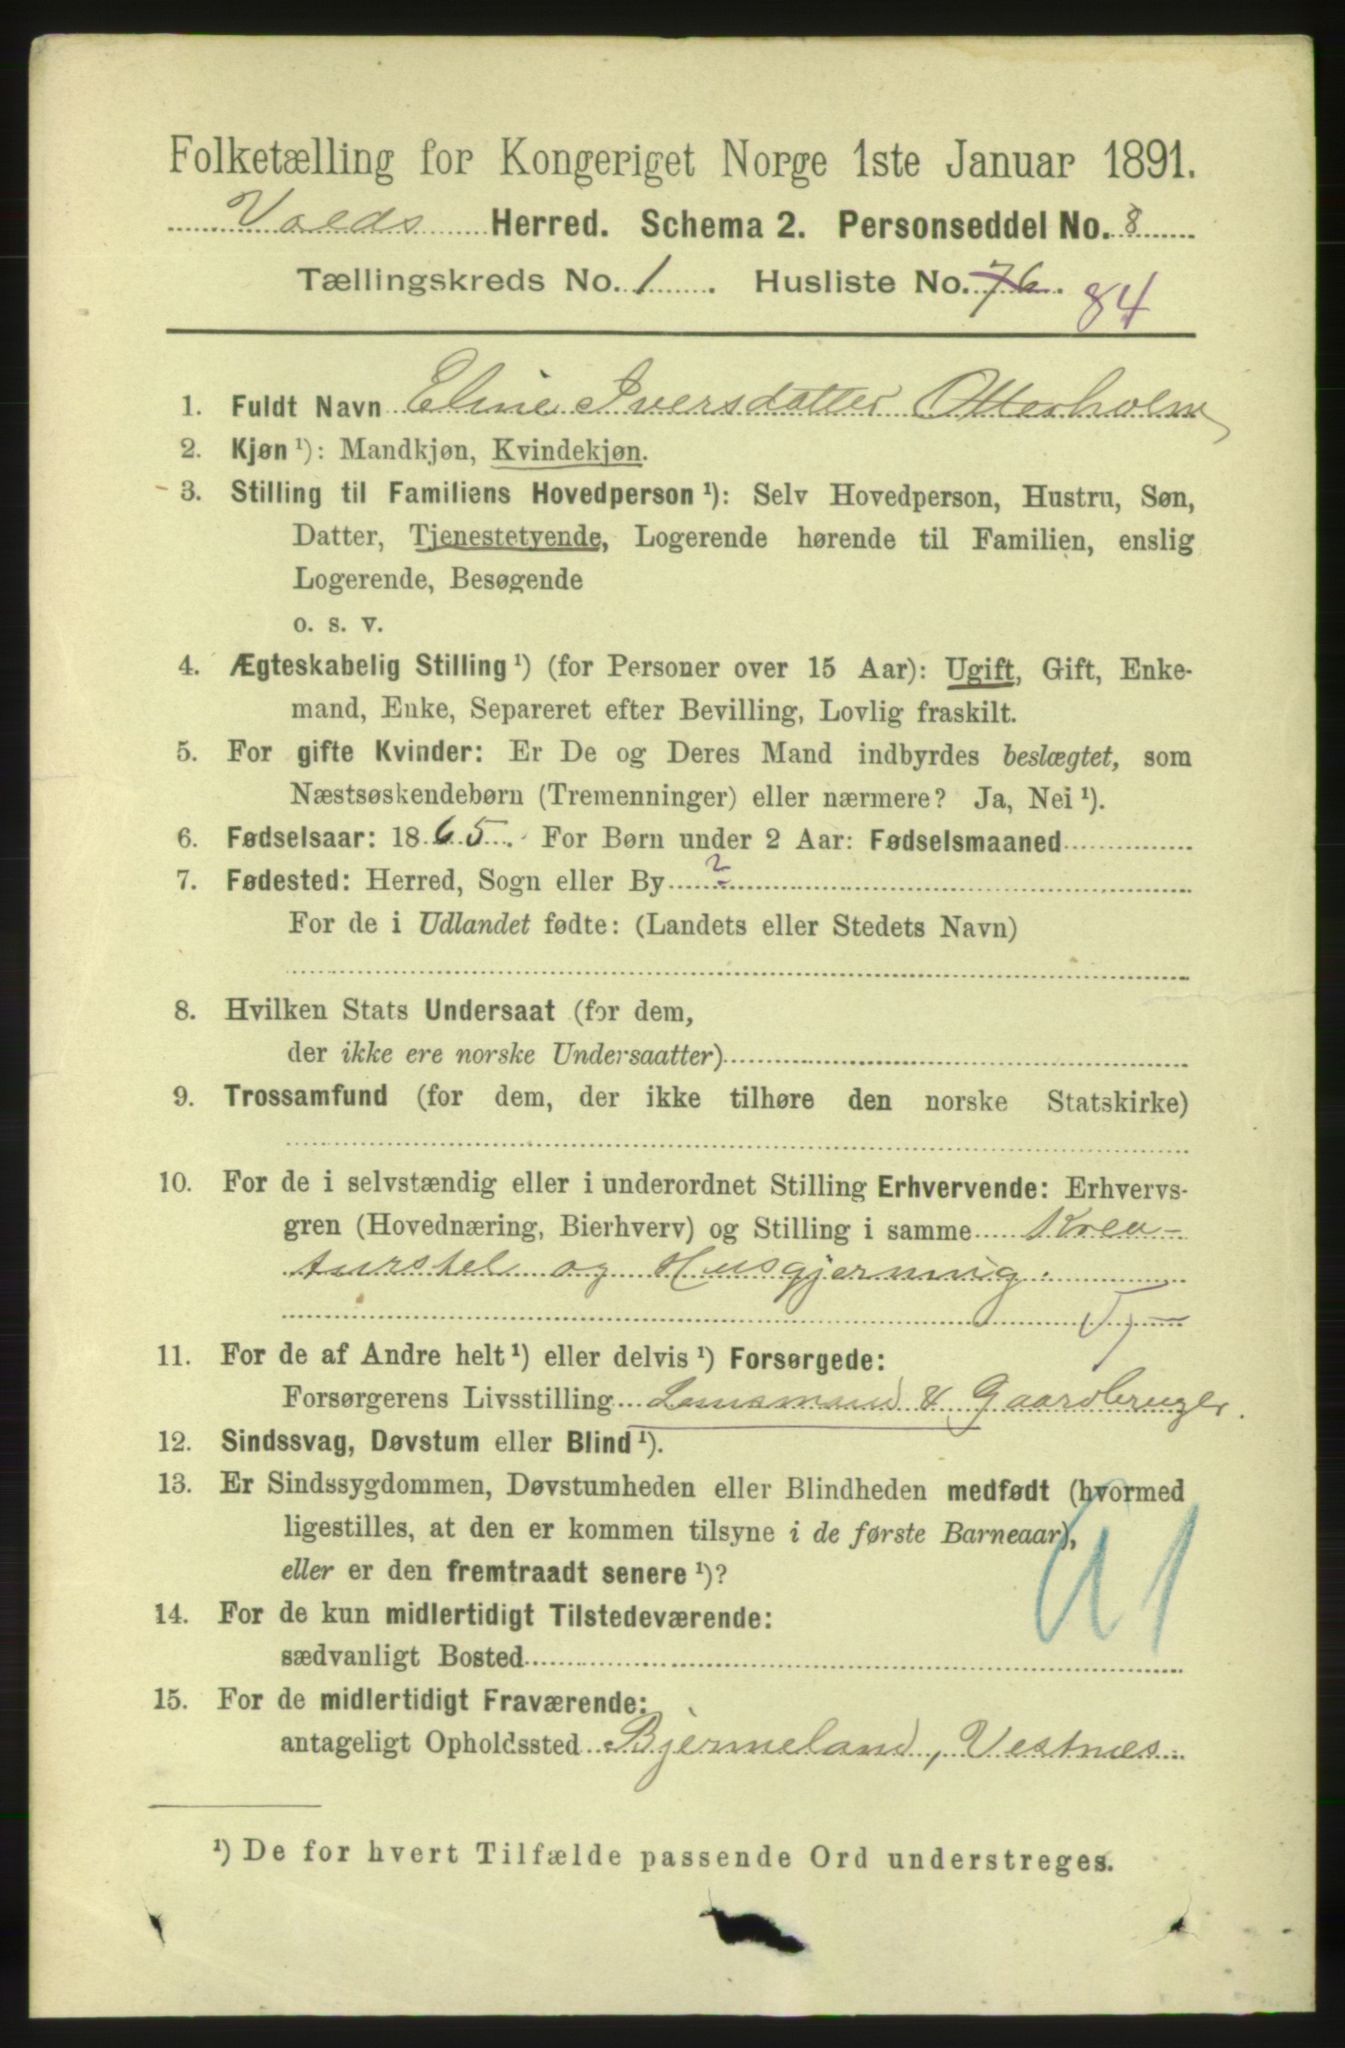 Folketælling for Kongeriget Norge 1ste Januar 1891.
Volds Herred. Schema 2. Personseddel No. 8
Tællingskreds No. 1. Husliste No. 76.
84
1. Fuldt Navn Eline Iversdatter Otterholm
2. Kjøn ¹): Mandkjøn, Kvindekjøn.
3. Stilling til Familiens Hovedperson ¹): Selv Hovedperson, Hustru, Søn,
Datter, Tjenestetyende, Logerende hørende til Familien, enslig
Logerende, Besøgende
o. s. v.
4. Ægteskabelig Stilling ¹) (for Personer over 15 Aar): Ugift, Gift, Enke-
mand, Enke, Separeret efter Bevilling, Lovlig fraskilt.
5. For gifte Kvinder: Er De og Deres Mand indbyrdes beslægtet, som
Næstsøskendebørn (Tremenninger) eller nærmere? Ja, Nei ¹).
6. Fødselsaar: 1865. For Børn under 2 Aar: Fødselsmaaned
7. Fødested: Herred, Sogn eller By ?
For de i Udlandet fødte: (Landets eller Stedets Navn)
8. Hvilken Stats Undersaat (for dem,
der ikke ere norske Undersaatter)
9. Trossamfund (for dem, der ikke tilhøre den norske Statskirke)
10. For de i selvstændig eller i underordnet Stilling Erhvervende: Erhvervs-
gren (Hovednæring, Bierhverv) og Stilling i samme Krea-
turstel og Husgjerning.
Tj
11. For de af Andre helt ¹) eller delvis ¹) Forsørgede:
Forsørgerens Livsstilling Lensmand & Gaardbruger.
12. Sindssvag, Døvstum eller Blind ¹).
13. Er Sindssygdommen, Døvstumheden eller Blindheden medfødt (hvormed
ligestilles, at den er kommen tilsyne i de første Barneaar),
eller er den fremtraadt senere ¹)?
14. For de kun midlertidigt Tilstedeværende:
sædvanligt Bosted
15. For de midlertidigt Fraværende:
antageligt Opholdssted Bjermeland, Vestnæs.
¹) De for hvert Tilfælde passende Ord understreges.